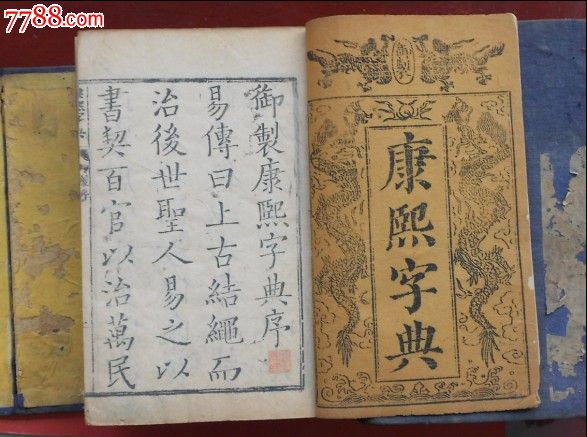 7788.com
御製
康熙字典
御製康熙字典序
易傳曰上古結繩而
治後世聖人易之以
書契百官以治萬民